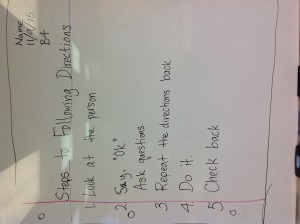 Name
11/9/15
B4
Steps to Following Directions
1. Look at the person.
2. Say, "Ok"
Ask questions
3 Repeat the directions back
4. Do it.
5 Check back